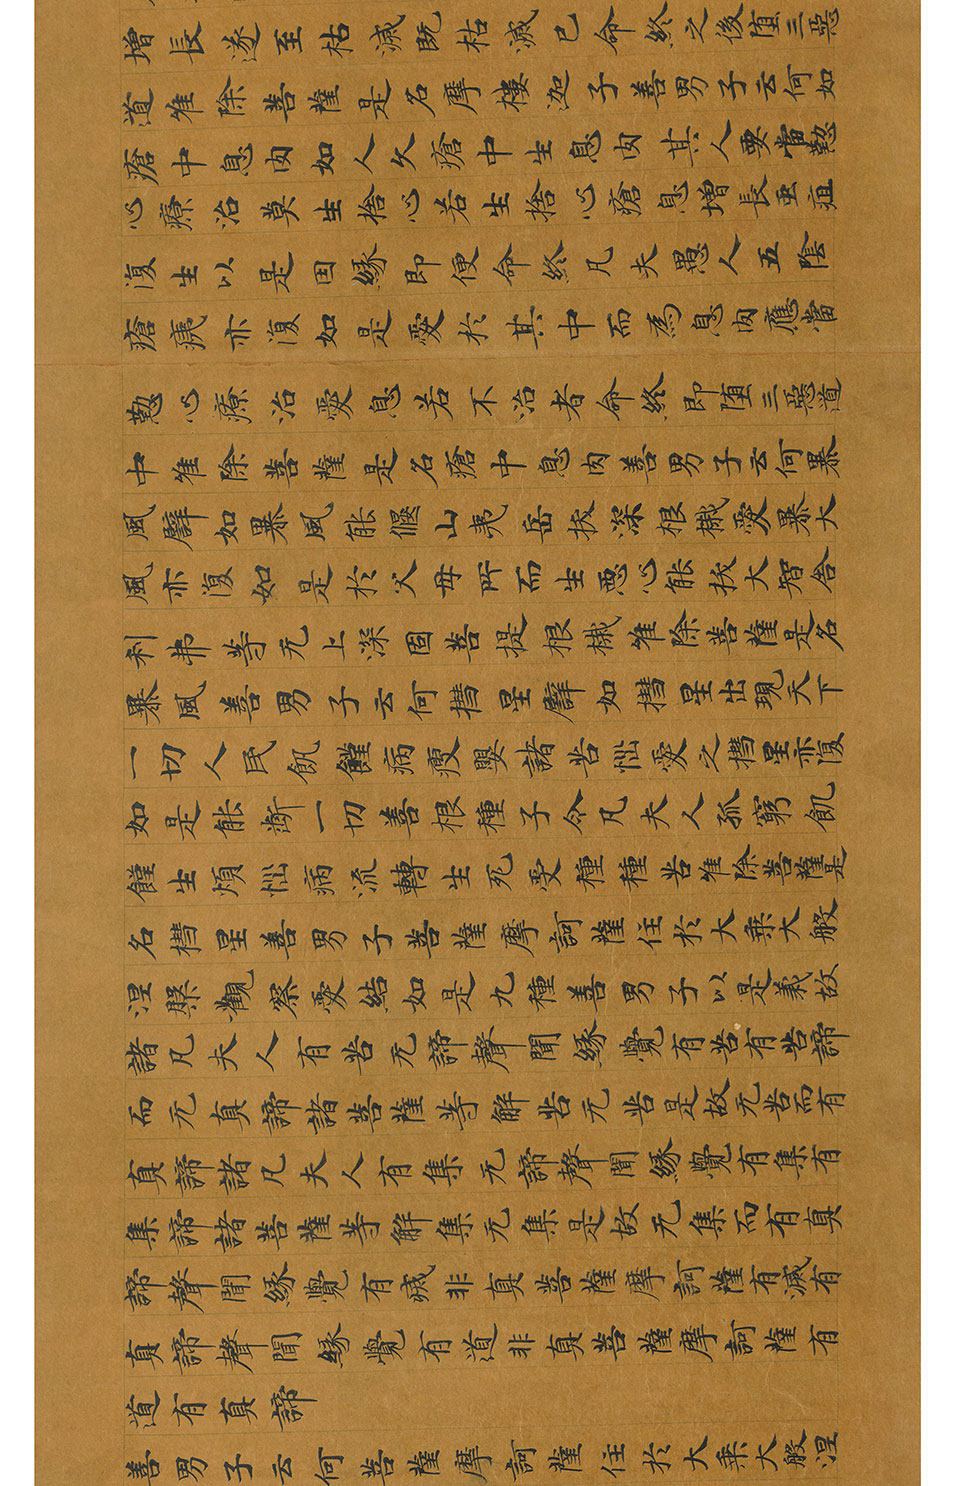 增長遂至枯滅既枯滅已命終之後堕三惡
道唯除菩薩是名摩樓迦子善男子云何如
瘡中息肉如人久瘡中生息肉其人要當懃
心療治莫生捨心若生捨心瘡息增長虫疽
復生以是因緣即便命終凡夫愚人五陰
瘡痍亦復如是愛於其中而為息肉應當
懃心療治愛息若不治者命終即堕三惡道
中唯除菩薩是名瘡中息肉善男子云何暴
風譬如暴風能偃山夷岳拔深根栽愛暴大
風亦復如是於父母所而生惡心能拔大智舍
利弗等无上深固菩提根栽唯除菩薩是名
暴風善男子云何彗星譬如彗星出現天下
一切人民飢饉病瘦嬰諸苦惱愛之彗星亦復
如是能斷一切善根種子令凡夫人孤窮飢
饉生煩惱病流轉生死受種種苦唯除菩薩是
名彗星善男子菩薩摩訶薩住於大乘大般
涅槃觀察愛結如是九種善男子以是義故
諸凡夫人有苦无諦聲聞緣覺有苦有苦諦
而无真諦諸菩薩等解苦无苦是故无苦而有
真諦諸凡夫人有集无諦聲聞緣覺有集有
集諦諸菩薩等解集无集是故无集而有真
諦聲聞緣覺有滅非真菩薩摩訶薩有滅有
真諦聲聞緣覺有道非真菩薩摩訶薩有
道有真諦
善男子云何菩薩摩訶薩住於大乘大般涅